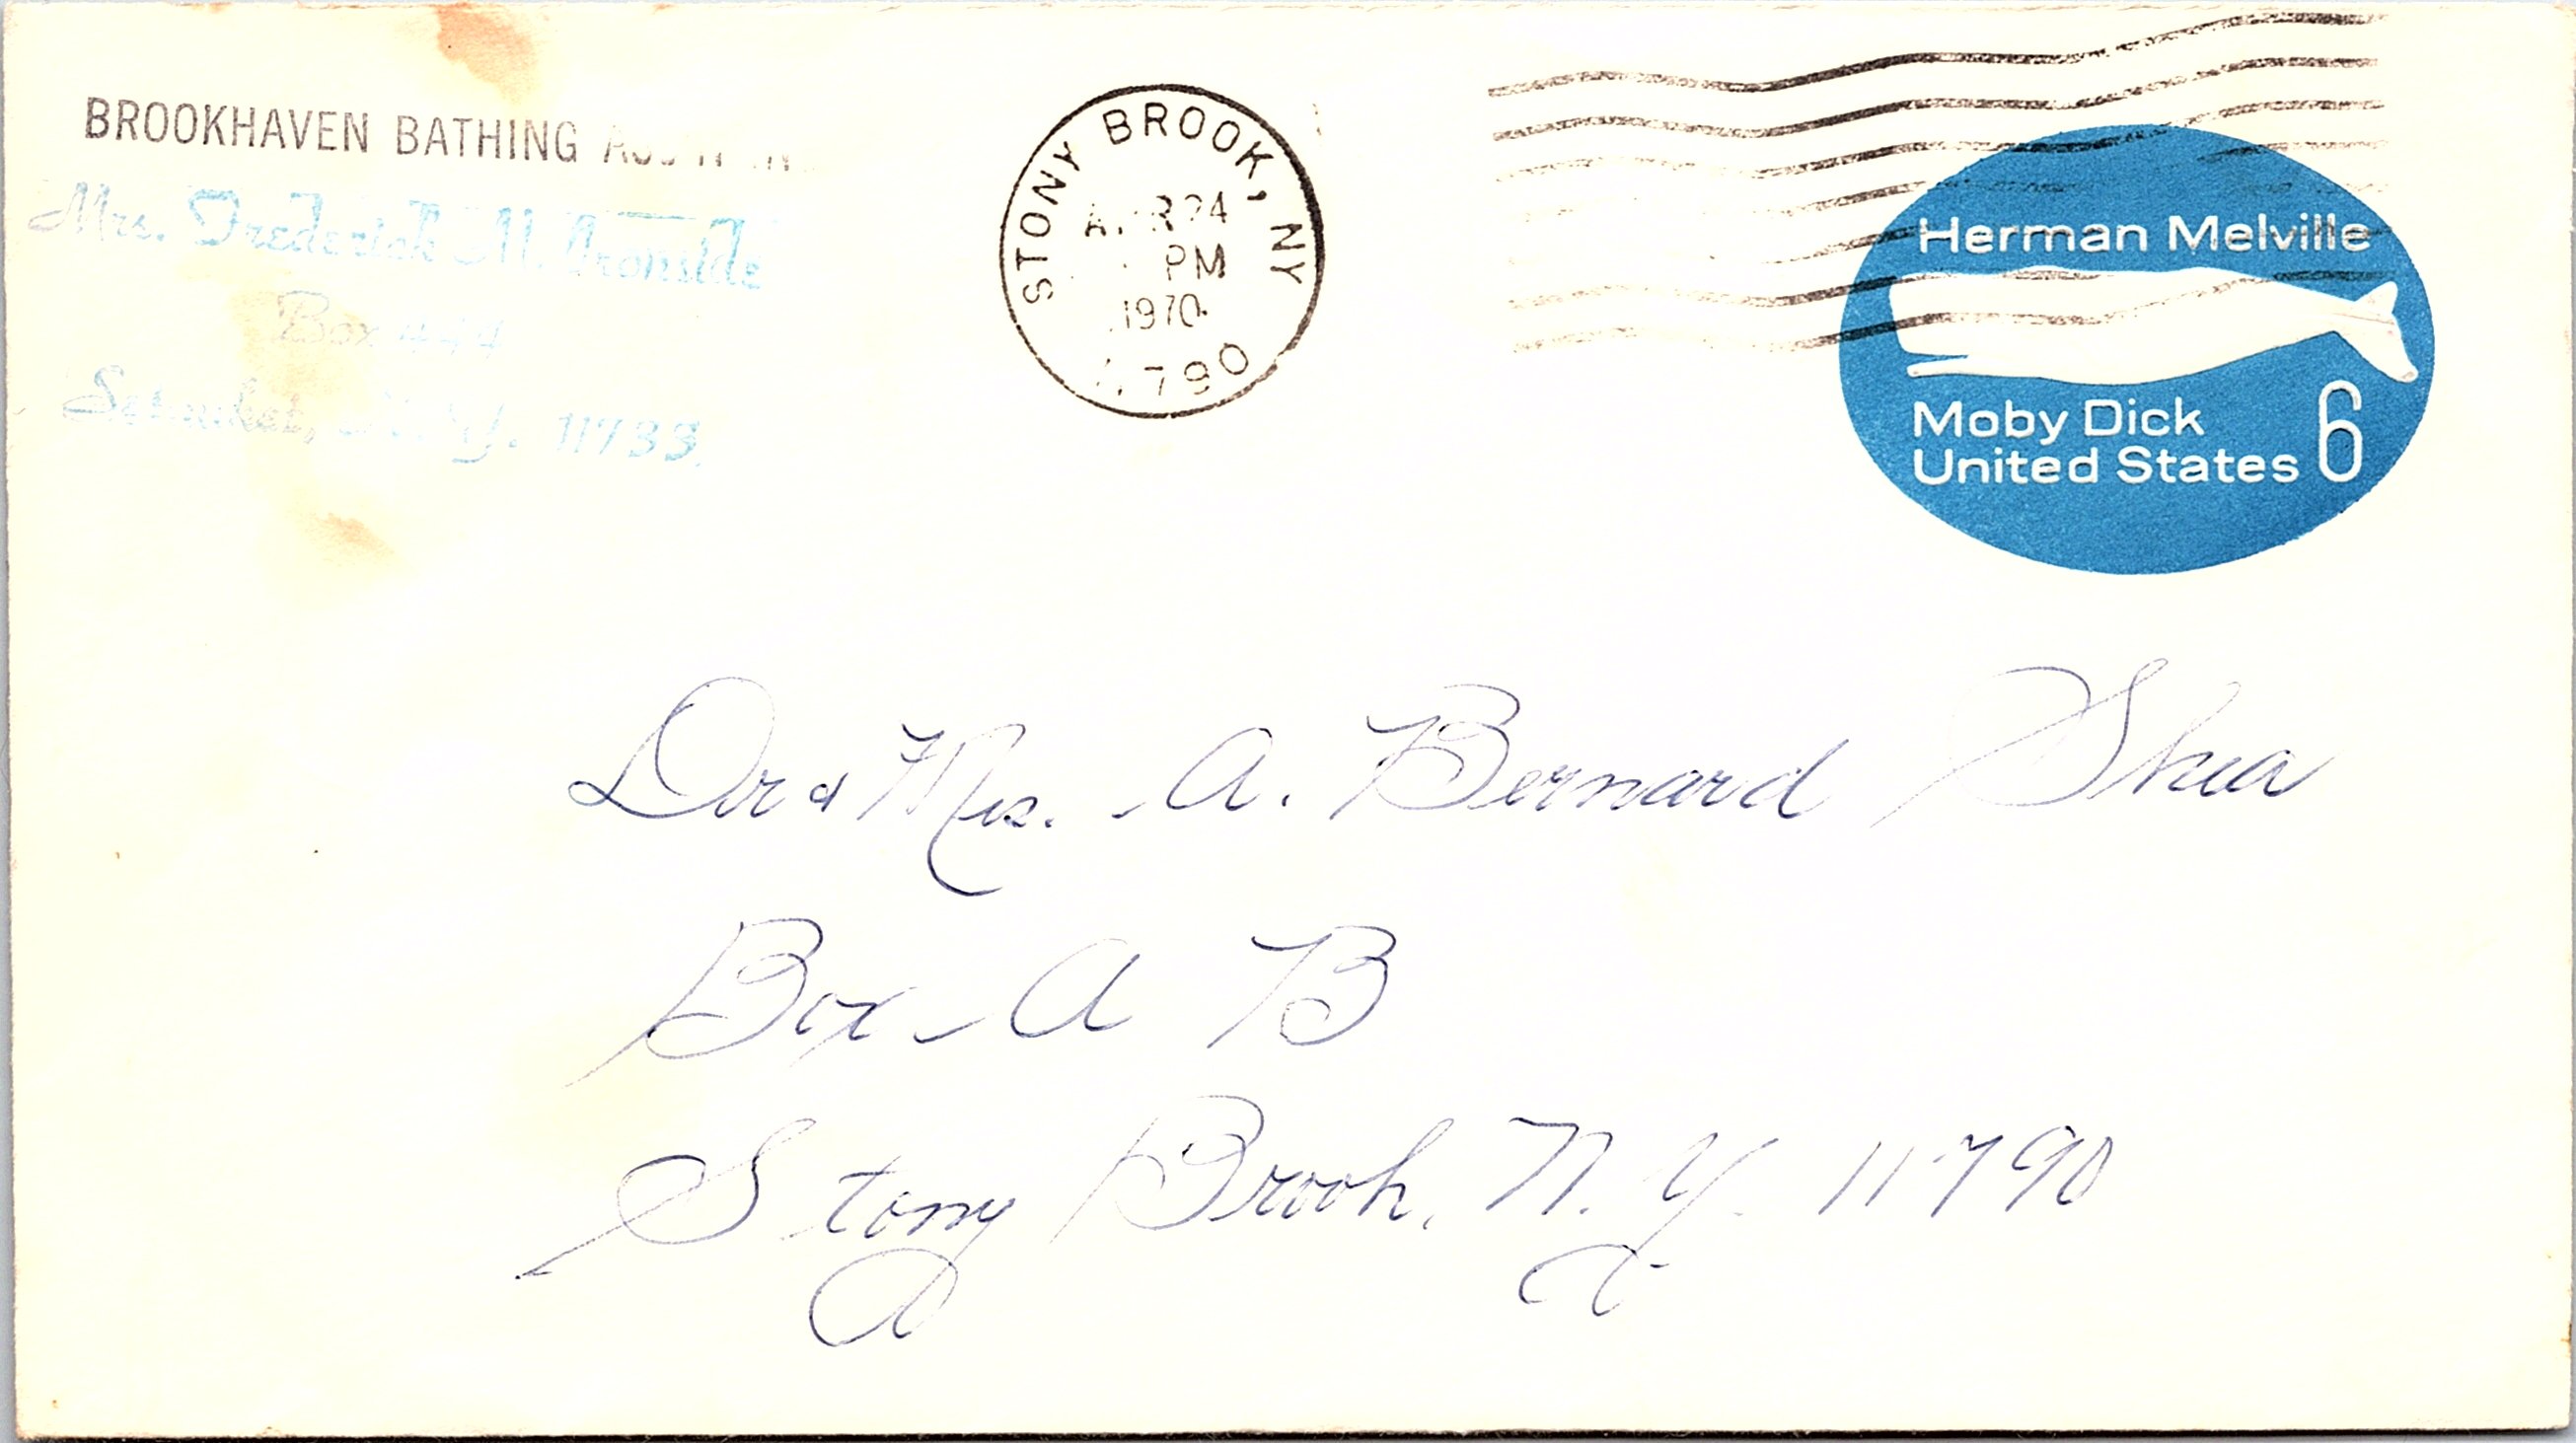 BROOKHAVEN BATHING
Mrs. Frederick M. Ironside
Box 444
Setauket, N.Y. 11733
STONY BROOK, NY
APR 24
PM
1970
11790
Herman Melville
Moby Dick
United States 6
Dr & Mrs. A. Bernard Shea
Box A B
Stony Brook, N.Y. 11790